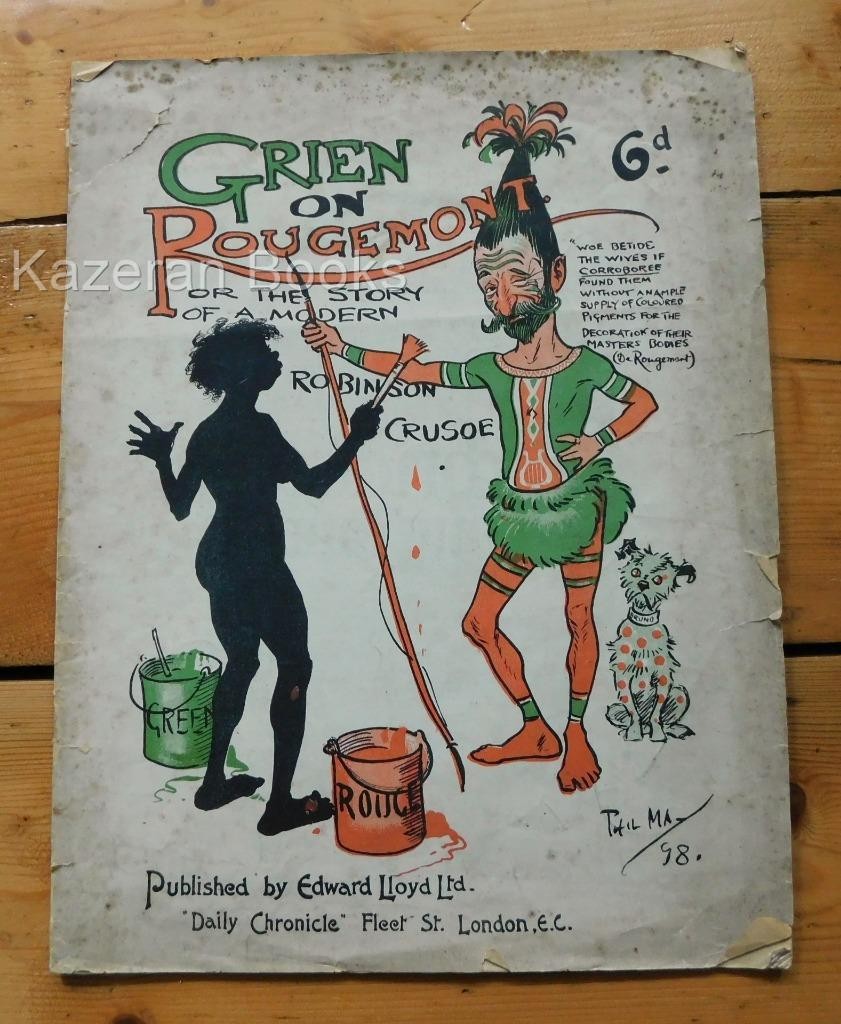 GRIEN
ON
ROUGEMONT.
6d
OR THE STORY
OF A MODERN
ROBINSON
CRUSOE
"WOE BETIDE
THE WIVES IF
CORROBOREE
FOUND THEM
WITHOUT AN AMPLE
SUPPLY OF COLOURED
PIGMENTS FOR THE
DECORATION OF THEIR
MASTERS BODIES
(De Rougemont)
Kazeran Books
BRUNO
GREEN
ROUGE
PHIL MAY
98.
Published by Edward Lloyd Ltd.
"Daily Chronicle" Fleet St. London, E.C.